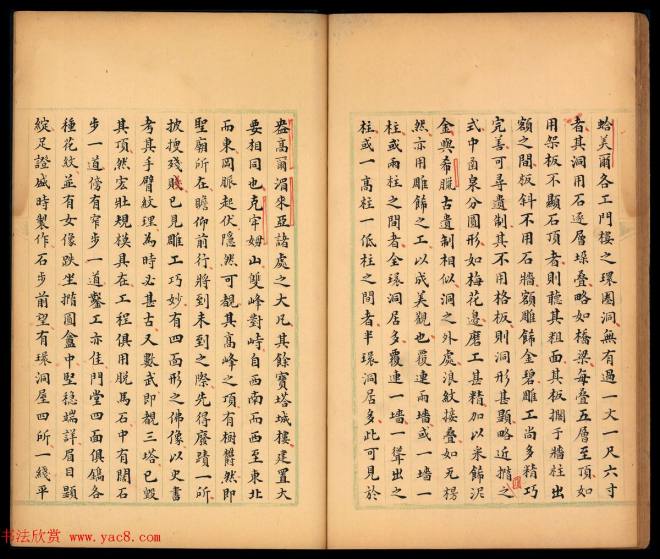 蛤美爾各工門樓之環圈洞無有過一大一尺六寸
者其洞用石逐層垛疊畧如橋梁每疊五層至頂如
用架板不顯石頂者則聽其粗面其板擱于牆柱出
額之間板斜不用石牆額雕餙金碧雕工尚多精巧
完善可尋遺制其不用格板則洞形甚顯略近揩之
式中函泉分圓形如梅花邊磨工甚精加以米餙泥
金與希臘古遺制相似洞之外處浪紋接疊如瓦楞
然亦用雕餙之工以成美觀也覆連兩墻或一墻一
柱或兩柱之間者全環洞居多覆連一墻一聳出之
柱或一高柱一低柱之間者半環洞居多此可見於
㕎高爾㴘來亞諸處之大凡其餘寶塔城樓建置大
要相同也克牢姆山雙峰對峙自西南而西至東北
而東岡脈起伏隱然可觀其高峰之頂有樹欝然即
聖廟所在瞻仰前行將到未到之際先得廢蹟一所
披搜殘賤已見雕工巧妙有四面形之佛像以史書
考其手臂紋理為時必甚古又數武即觀三塔已毀
其頂然宏壯規模具在工程俱用脫馬石中有闊石
步一道傍有窄步一道鑿工亦佳門堂四面俱鐫各
種花紋並有女像趺坐揩圓龕中堅穩端詳眉目顯
綻足證盛時製作石步前望有環洞屋四所一綫平
书法欣赏 www.yac8.com